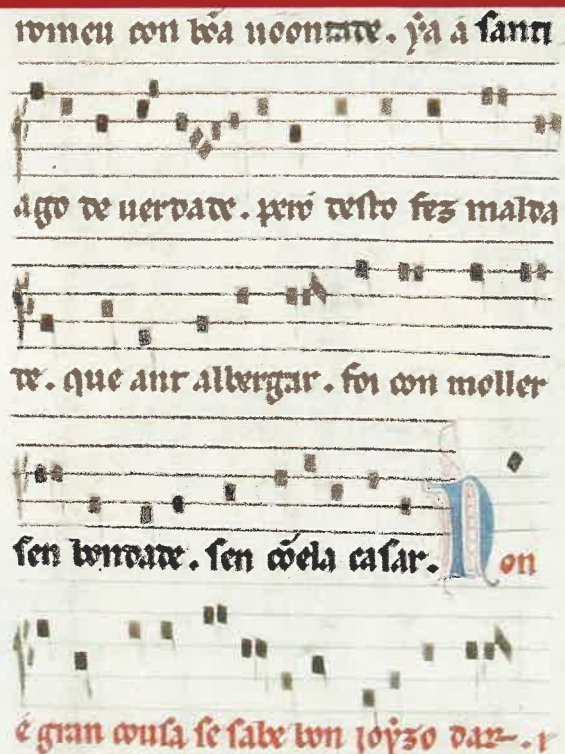 romeu con bõa uoontade. ẏa a santi
ago de uerdade. pero desto fez malda
de. que ant albergar. foi con moller
sen bondade. sen cõela casar. Non
é gran cousa se sabe bon joẏzo dar.